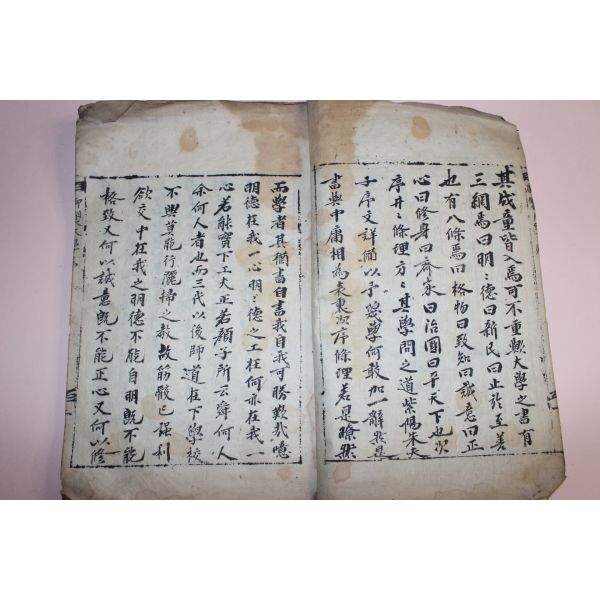 其成童皆入焉可不重歟大學之書有
三綱焉曰明〻德曰新民曰止於至善
也有八條焉曰格物曰致知曰誠意曰正
心曰修身曰齊家曰治國曰平天下也次
序井〻條理方〻其學問之道紫陽朱夫
子序文詳備以予蔑學何敢加一辭然是
書與中庸相為表裏次序條理若是瞭然
而學者其猶書自書我自我可勝歎哉噫
明德在我一心明〻德之工在何亦在我一
心若能實下工夫正若顔子所云舜何人
余何人者也而三代以後師道在下學校
不興莫能行灑掃之教故筋骸已强利
欲交中在我之明德不能自明旣不能
格致又何以誠意旣不能正心又何以修